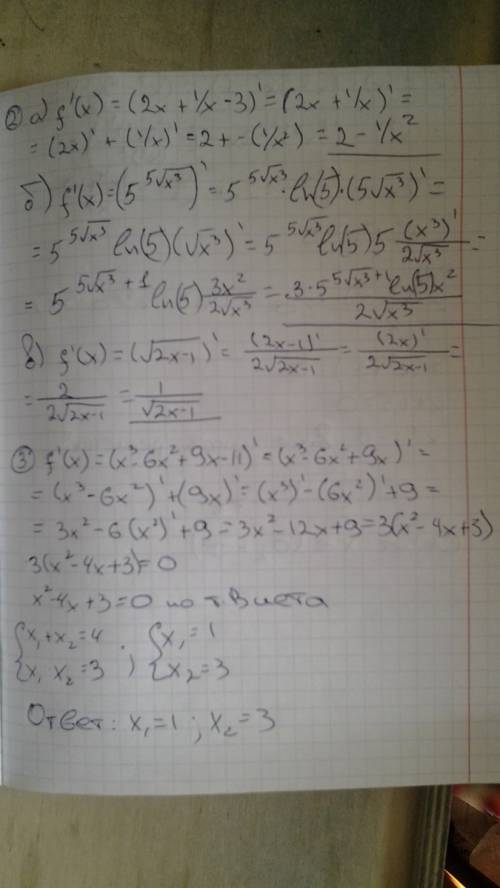 ② а) f'(x) = (2x + 1/x - 3)' = (2x + 1/x)' =
= (2x)' + (1/x)' = 2 + -(1/x²) = 2 - 1/x²
б) f'(x) = (5^(5√x³))' = 5^(5√x³) · ln(5) · (5√x³)' =
= 5^(5√x³) ln(5) (√x³)' = 5^(5√x³) ln(5) 5 (x³)'/(2√x³) =
= 5^(5√x³ + 1) ln(5) 3x²/(2√x³) = (3·5^(5√x³+1) ln(5) x²)/(2√x³)
в) f'(x) = (√(2x-1))' = (2x-1)'/(2√(2x-1)) = (2x)'/(2√(2x-1)) =
= 2/(2√(2x-1)) = 1/√(2x-1)
③ f'(x) = (x³-6x²+9x-11)' = (x³-6x²+9x)' =
= (x³-6x²)' + (9x)' = (x³)' - (6x²)' + 9 =
= 3x² - 6(x²)' + 9 = 3x² - 12x + 9 = 3(x²-4x+3)
3(x²-4x+3) = 0
x²-4x+3=0 по т. Виета
{x₁+x₂=4 ; {x₁=1
{x₁ x₂=3 {x₂=3
Ответ: x₁=1 ; x₂=3